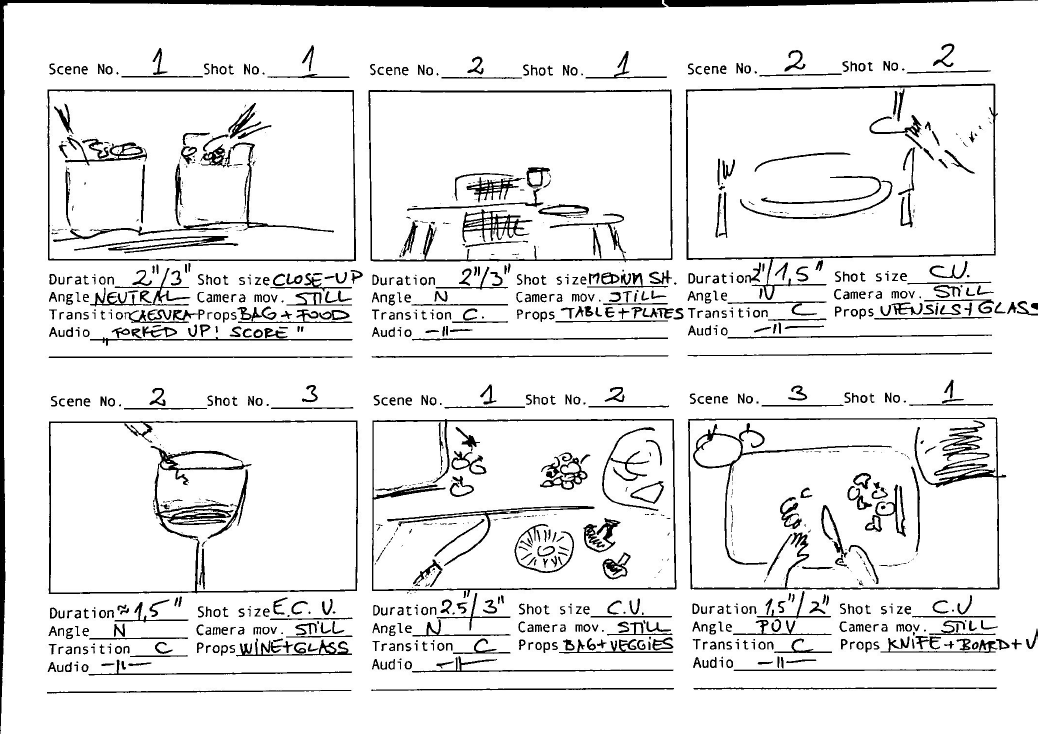 Scene No. 1 Shot No. 1
Duration 2"/3" Shot size CLOSE-UP
Angle NEUTRAL Camera mov. STILL
Transition CAESURA Props BAG + FOOD
Audio „FORKED UP! SCORE"
Scene No. 2 Shot No. 1
Duration 2"/3" Shot size MEDIUM SH.
Angle N Camera mov. STILL
Transition C. Props TABLE + PLATES
Audio —||—
Scene No. 2 Shot No. 2
Duration 2"/1,5" Shot size C.U.
Angle N Camera mov. STILL
Transition C Props UTENSILS + GLASS
Audio —||—
Scene No. 2 Shot No. 3
Duration ≈1,5" Shot size E.C.U.
Angle N Camera mov. STILL
Transition C Props WINE+GLASS
Audio —||—
Scene No. 1 Shot No. 2
Duration 2.5"/3" Shot size C.U.
Angle N Camera mov. STILL
Transition C Props BAG+VEGGIES
Audio —||—
Scene No. 3 Shot No. 1
Duration 1,5"/2" Shot size C.U
Angle POV Camera mov. STILL
Transition C Props KNIFE + BOARD + V
Audio —||—